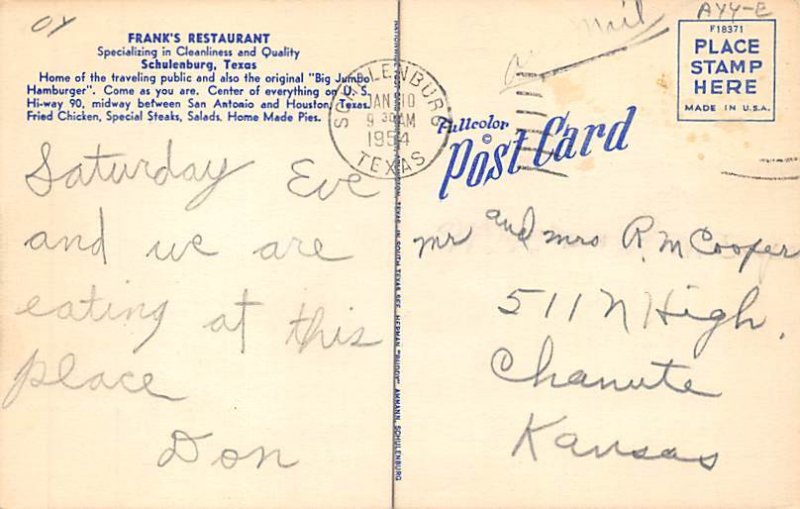 AYY-E
FRANK'S RESTAURANT
Specializing in Cleanliness and Quality
Schulenburg, Texas
Home of the traveling public and also the original "Big Jumbo
Hamburger". Come as you are. Center of everything on U. S.
Hi-way 90, midway between San Antonio and Houston, Texas.
Fried Chicken, Special Steaks, Salads. Home Made Pies.
Saturday Eve
and we are
eating at this
place
Don
SCHULENBURG
JAN 10
9 30 AM
1954
TEXAS
IN SOUTH TEXAS SEE HERMAN "BUDDY" AMMANN, SCHULENBURG
Mail
Fullcolor
©
Post Card
F18371
PLACE
STAMP
HERE
MADE IN U.S.A.
mr and mrs R. M Cooper
511 N High,
Chanute
Kansas